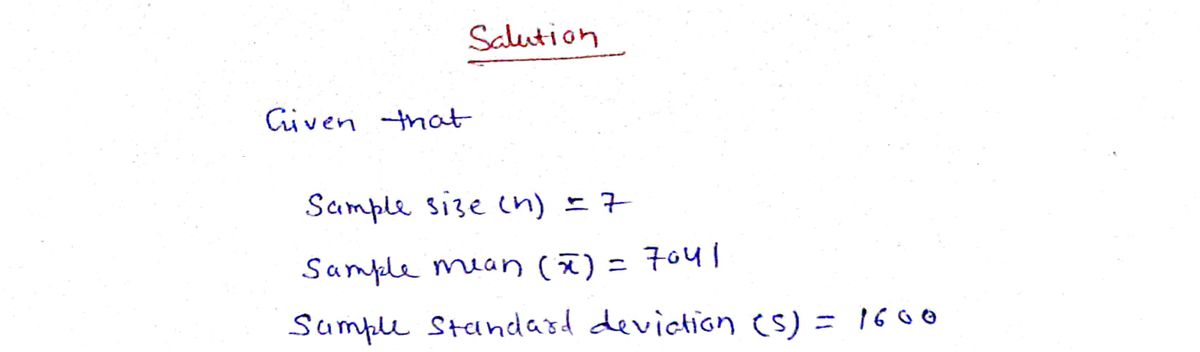 Salution
Given that
Sample size (n) = 7
Sample mean (x̄) = 7041
Sample standard deviation (s) = 1600